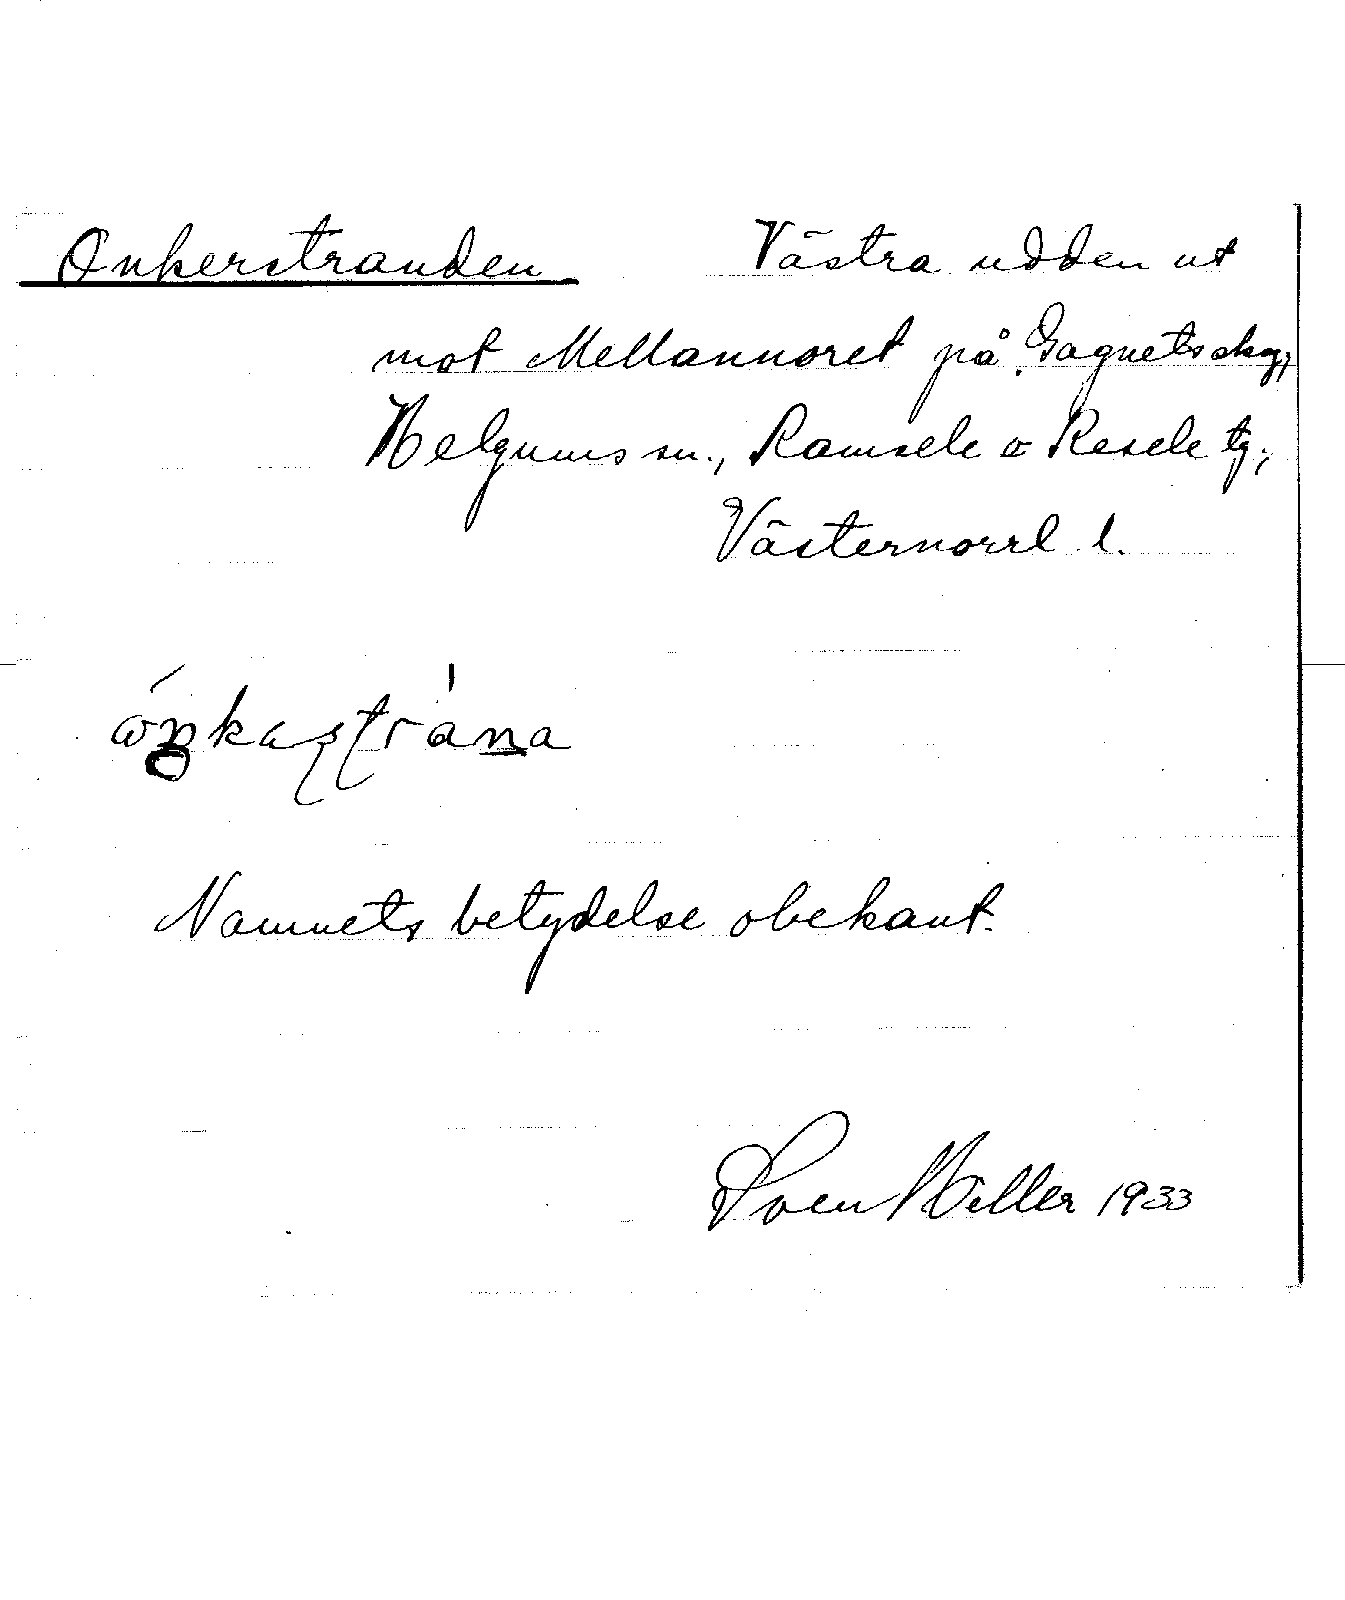 Onkerstranden Västra udden ut
mot Mellannoret på Gagnets skog,
Helgums sn., Ramsele o Resele tg.,
Västernorrl l.
Namnets betydelse obekant.
Sven Hiller 1933